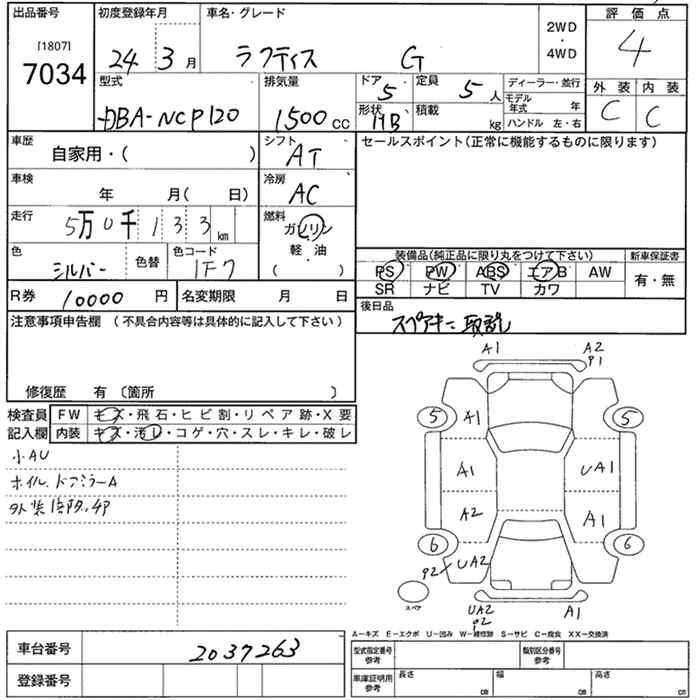 出品番号 初度登録年月 車名・グレード 2WD・4WD 評価点
[1807]
7034 24 3月 ラクティス G 4
型式 排気量 ドア 定員 ディーラー・並行 外装 内装
5 5人 モデル年式 年 C C
DBA-NCP120 1500cc 形状 HB 積載 kg ハンドル 左・右
車歴 シフト セールスポイント(正常に機能するものに限ります)
自家用・( ) AT
車検 冷房
年 月( 日) AC
走行 燃料
5万0千133km ガソリン
軽・油
( )
色 色替 色コード
シルバー 1F7
装備品(純正品に限り丸をつけて下さい) 新車保証書
PS PW ABS エアB AW 有・無
SR ナビ TV カワ
R券 10000円 名変期限 月 日
後日品
スペアキー 取説
注意事項申告欄(不具合内容等は具体的に記入して下さい)
修復歴 有〔箇所 〕
検査員 FW キズ・飛石・ヒビ割・リペア跡・X要
記入欄 内装 キズ・汚レ・コゲ・穴・スレ・キレ・破レ
小AU
ホイル、ドアミラーA
A1 A2
P1
5 A1 5
A1 UA1
A2 A1
6 6
P2 UA2
スペア
UA2
P2
A1
A−キズ E−エクボ U−凹み W−補修跡 S−サビ C−腐食 XX−交換済
車台番号 2037263
登録番号
型式指定番号 参考 類別区分番号 参考
車庫証明用 参考 長さ cm 幅 cm 高さ cm